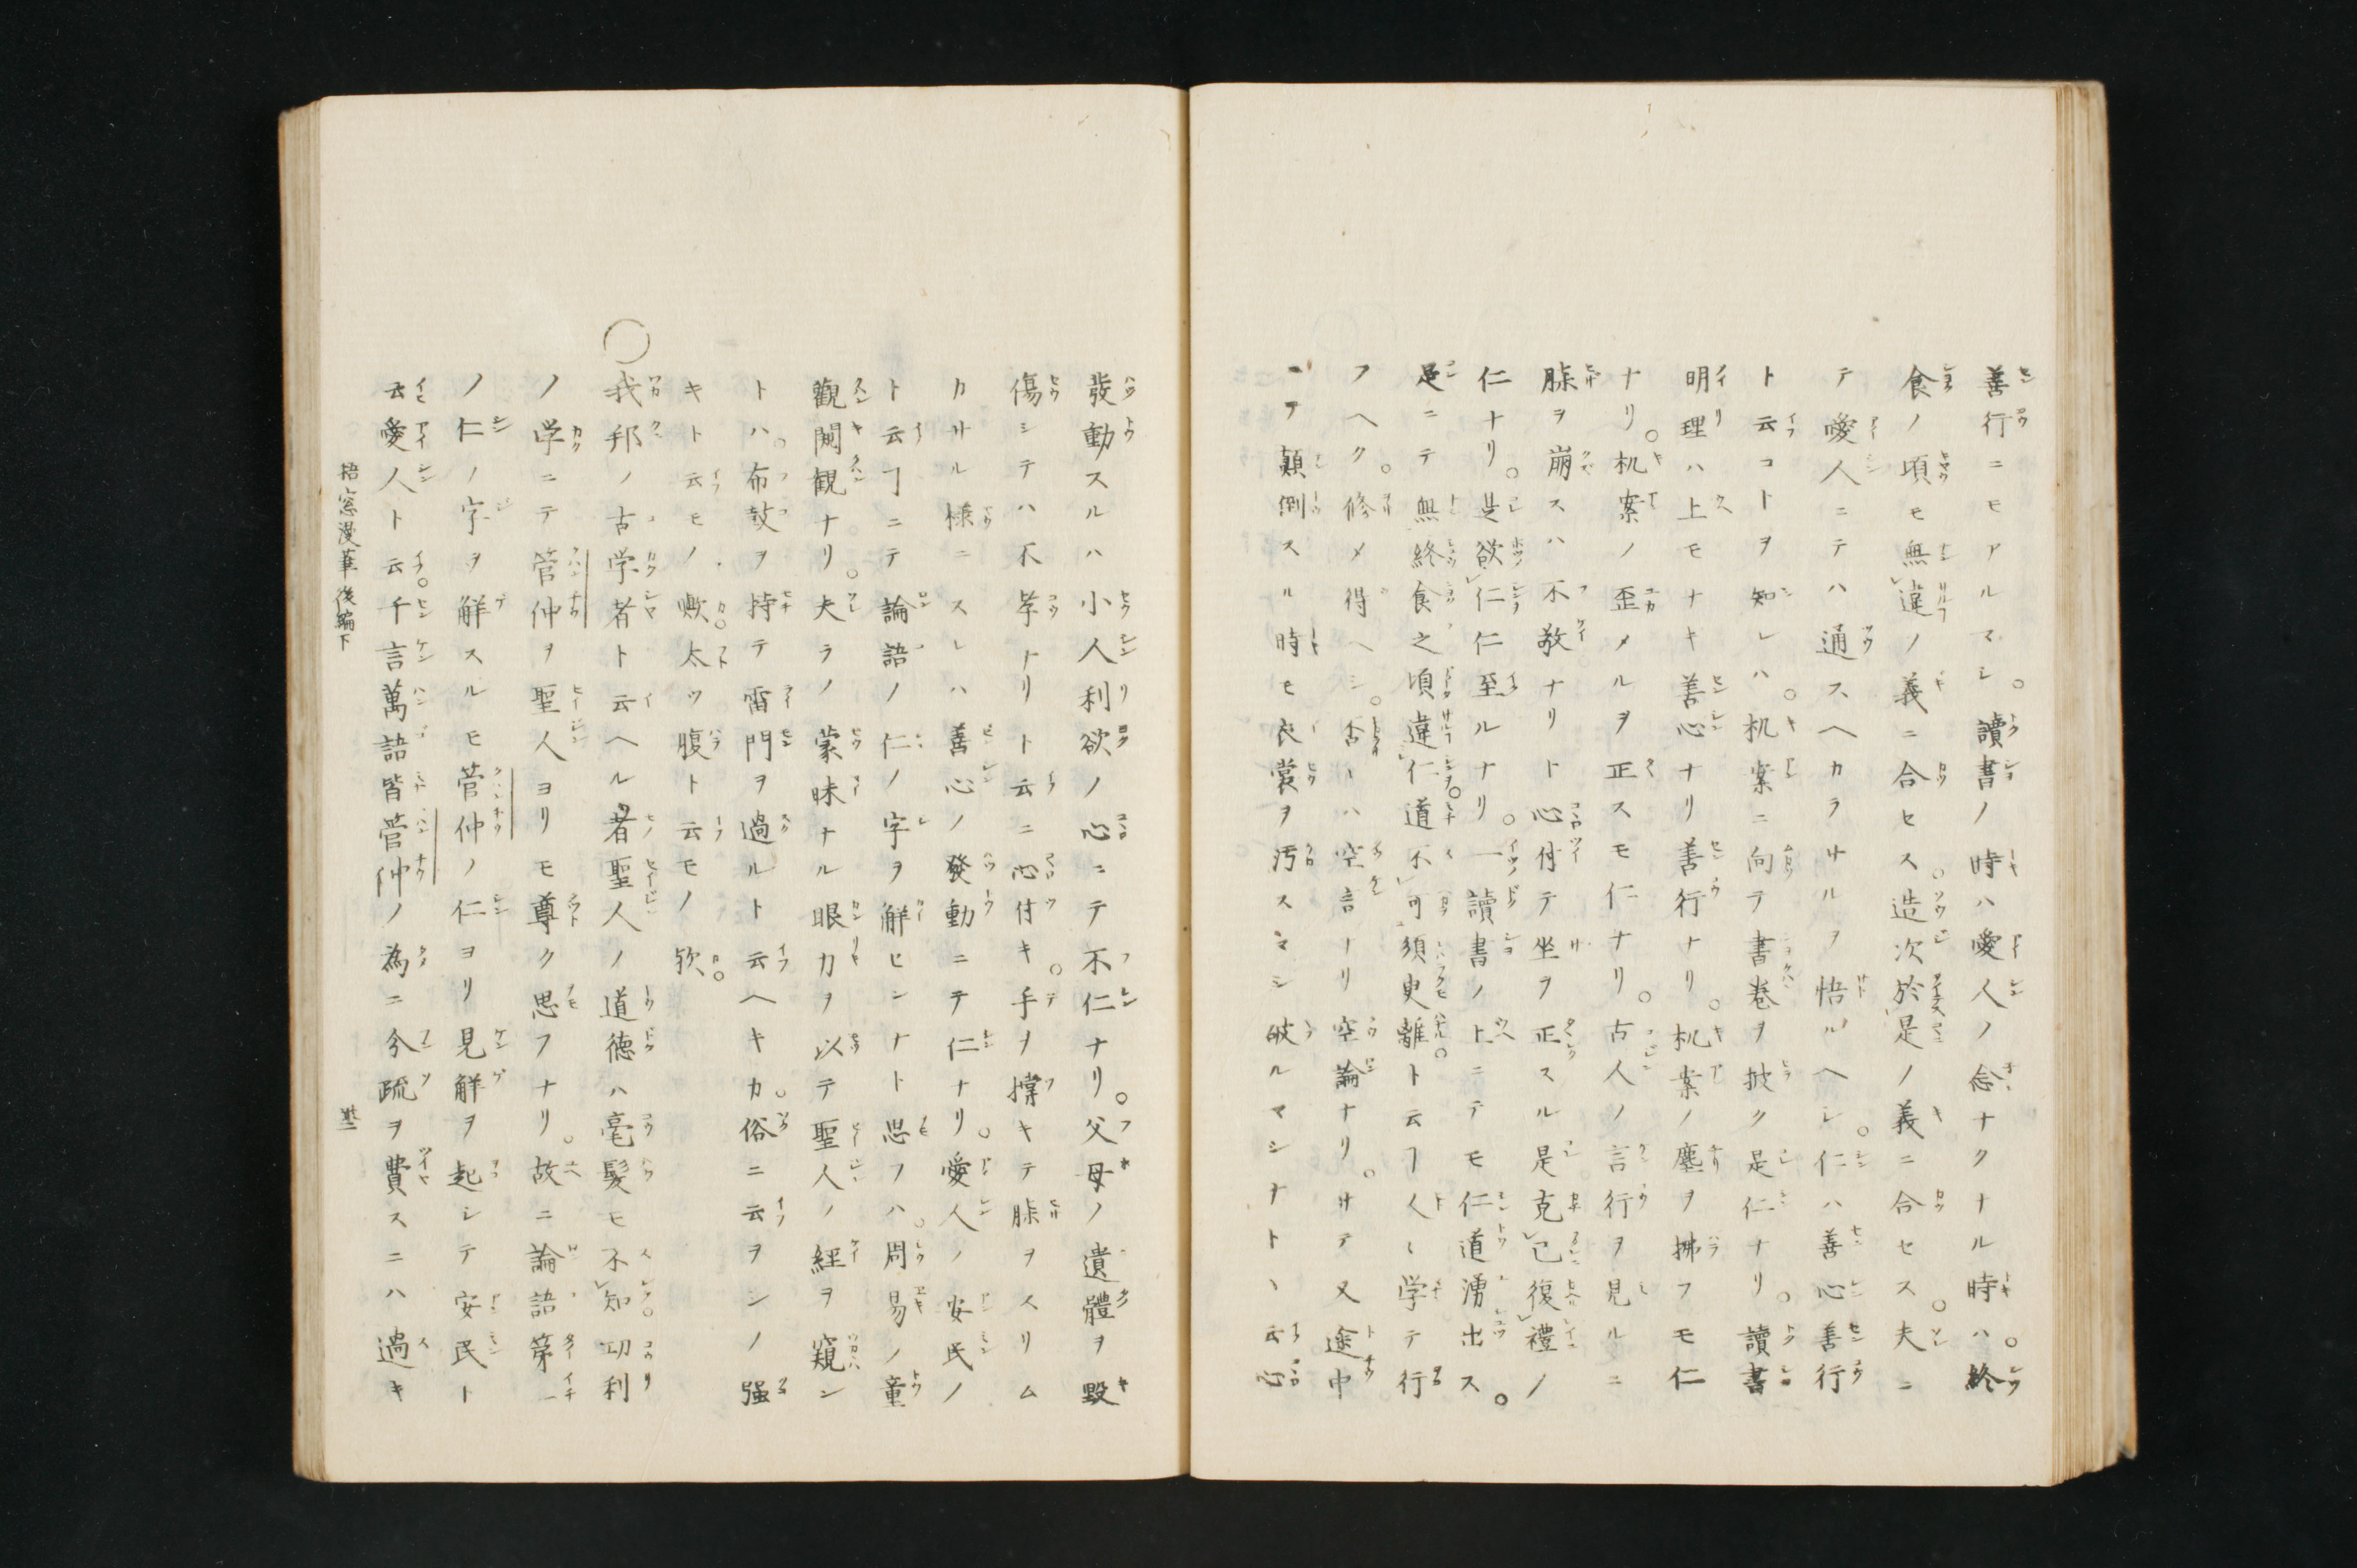 善行ニモアルマシ。讀書ノ時ハ愛人ノ念ナクナル時ハ。終
食ノ頃モ無違ノ義ニ合セス。造次於是ノ義ニ合セス。夫ニ
テ愛人ニテハ通スヘカラサルヲ悟ルヘシ。仁ハ善心善行
ト云コトヲ知レハ。机案ニ向テ書巻ヲ披ク是仁ナリ。讀書
明理ハ上モナキ善心ナリ善行ナリ。机案ノ塵ヲ拂フモ仁
ナリ。机案ノ歪メルヲ正スモ仁ナリ。古人ノ言行ヲ見ルニ
膝ヲ崩スハ不敬ナリト心付テ坐ヲ正スル是克己復禮ノ
仁ナリ。是欲仁仁至ルナリ。一讀書ノ上ニテモ仁道湧出ス。
是ニテ無終食之頃違仁道不可須臾離ト云フ人々学テ行
フヘク。修メ得ヘシ。否ハ空言ナリ空論ナリ。サテ又途中
ニテ顛倒スル時モ衣裳ヲ汚スマシ破ルマシナト、云心
發動スルハ小人利欲ノ心ニテ不仁ナリ。父母ノ遺體ヲ毀
傷シテハ不孝ナリト云ニ心付キ。手ヲ撑キテ膝ヲスリム
カサル様ニスレハ善心ノ發動ニテ仁ナリ。愛人ノ安民ノ
ト云ヿニテ論語ノ仁ノ字ヲ解センナト思フハ。周易ノ童
觀闚観ナリ。夫ラノ蒙昧ナル眼力ヲ以テ聖人ノ經ヲ窺ン
トハ。布鼓ヲ持テ雷門ヲ過ルト云ヘキカ。俗ニ云ヲシノ强
キト云モノ歟。太ッ腹ト云モノ欤。
○我邦ノ古学者ト云ヘル者聖人ノ道德ハ毫髮モ不知。功利
ノ学ニテ管仲ヲ聖人ヨリモ尊ク思フナリ。故ニ論語第一
ノ仁ノ字ヲ解スルモ管仲ノ仁ヨリ見解ヲ起シテ安民ト
云愛人ト云。千言萬語皆管仲ノ為ニ分疏ヲ費スニハ過キ
梧窓漫筆後編下